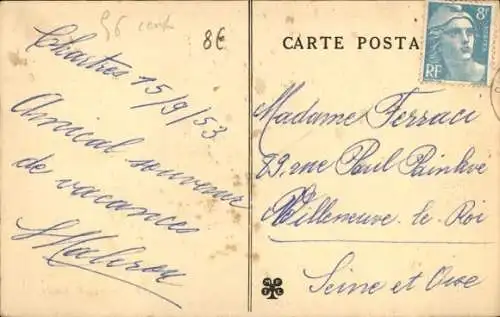 8€
Chartres 15/9/53
Amical souvenir
de vacances
CARTE POSTA
8F
POSTES
RF
Madame Ferraci
89, rue Paul Painlevé
Villeneuve-le-Roi
Seine et Oise